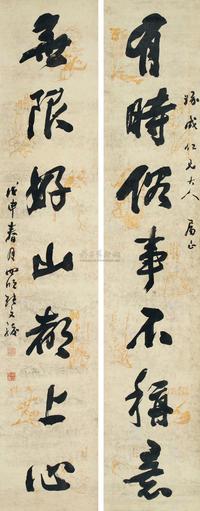 有時俗事不稱意
無限好山都上心
成仁兄大人 屬正
戊申春月